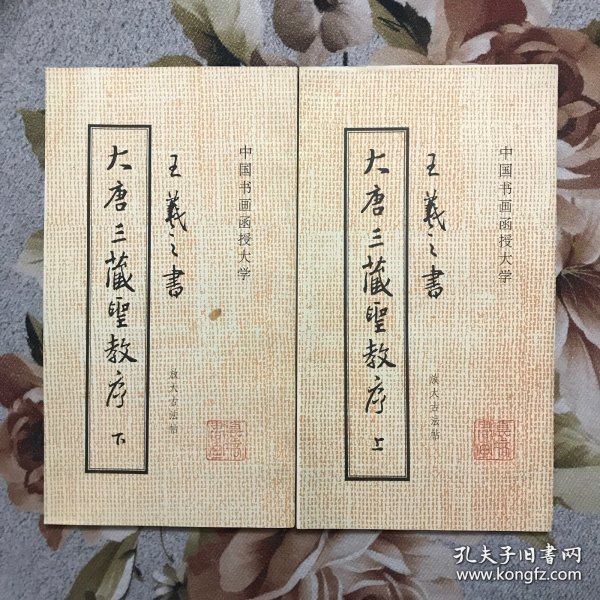 中国书画函授大学
王羲之書
大唐三藏聖教序 下
放大古法帖
中国书画函授大学
王羲之書
大唐三藏聖教序 上
放大古法帖
孔夫子旧书网
www.kongfz.com